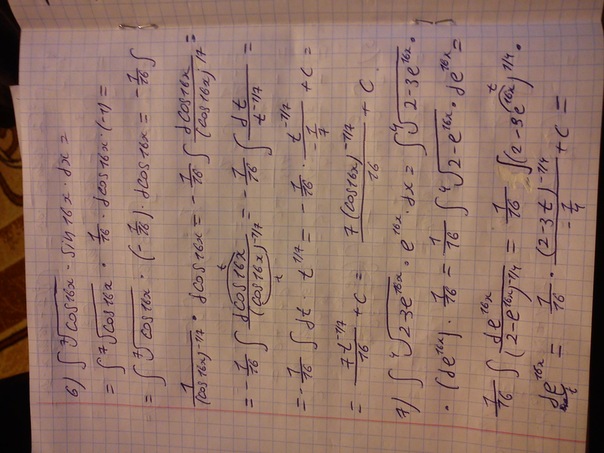 6) ∫ ⁷√cos16x · sin16x · dx =
= ∫ ⁷√cos16x · 1/16 · dcos16x · (-1) =
= ∫ ⁷√cos16x · (-1/16) · dcos16x = -1/16 ∫
1/(cos16x)^-1/7 · dcos16x = -1/16 ∫ dcos16x/(cos16x)^1/7 =
= -1/16 ∫ dcos16x/(cos16x)^-1/7 = -1/16 ∫ dt/t^-1/7 =
= -1/16 ∫ dt · t^1/7 = -1/16 · t^-1/7/(-1/7) + C =
= 7t^-1/7/16 + C = 7(cos16x)^-1/7/16 + C.
7) ∫ ⁴√2-3e^16x · e^16x · dx = ∫ ⁴√2-3e^16x ·
· (de^16x) · 1/16 = 1/16 ∫ ⁴√2-e^16x · de^16x =
1/16 ∫ de^16x/(2-e^16x)^-1/4 = 1/16 ∫ (2-3e^16x)^1/4 ·
de^16x = 1/16 · (2-3t)^-1/4/(-1/4) + C =